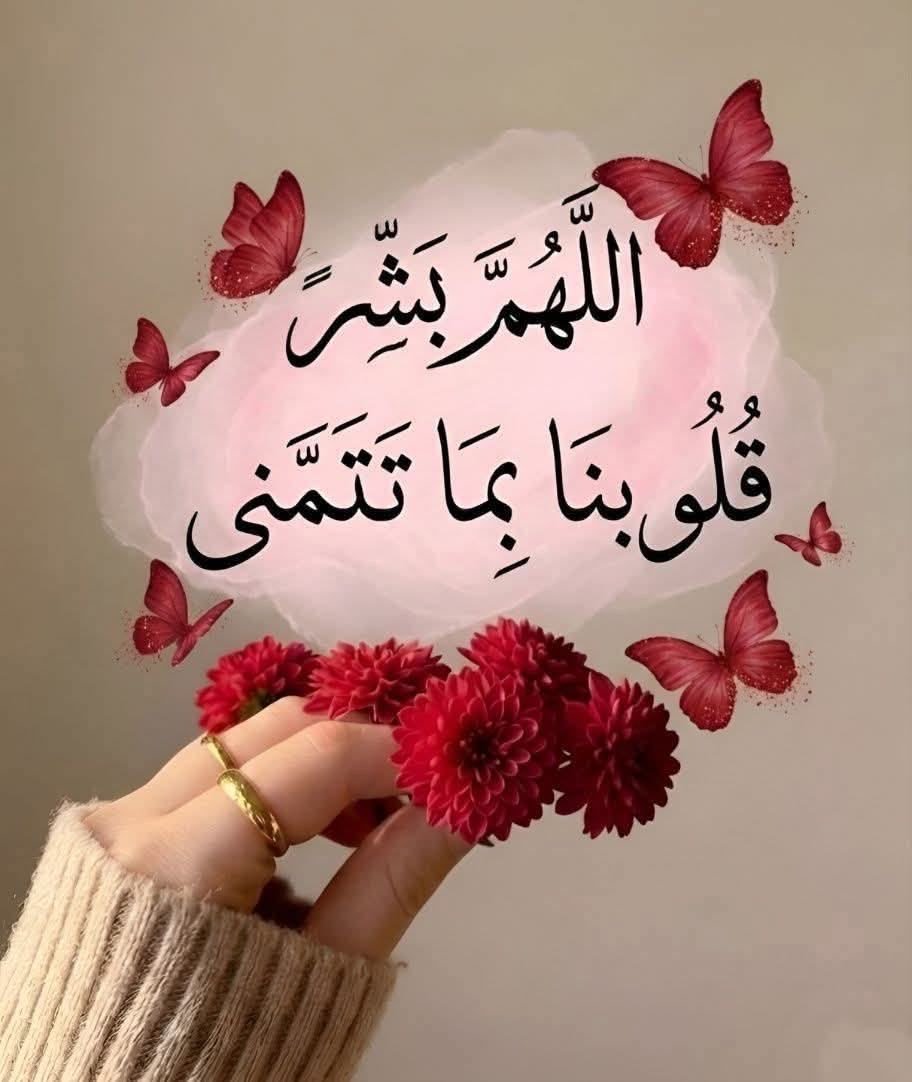 اللَّهُمَّ بَشِّرً
قُلُوبنَا بِمَا تَتَمَّنى